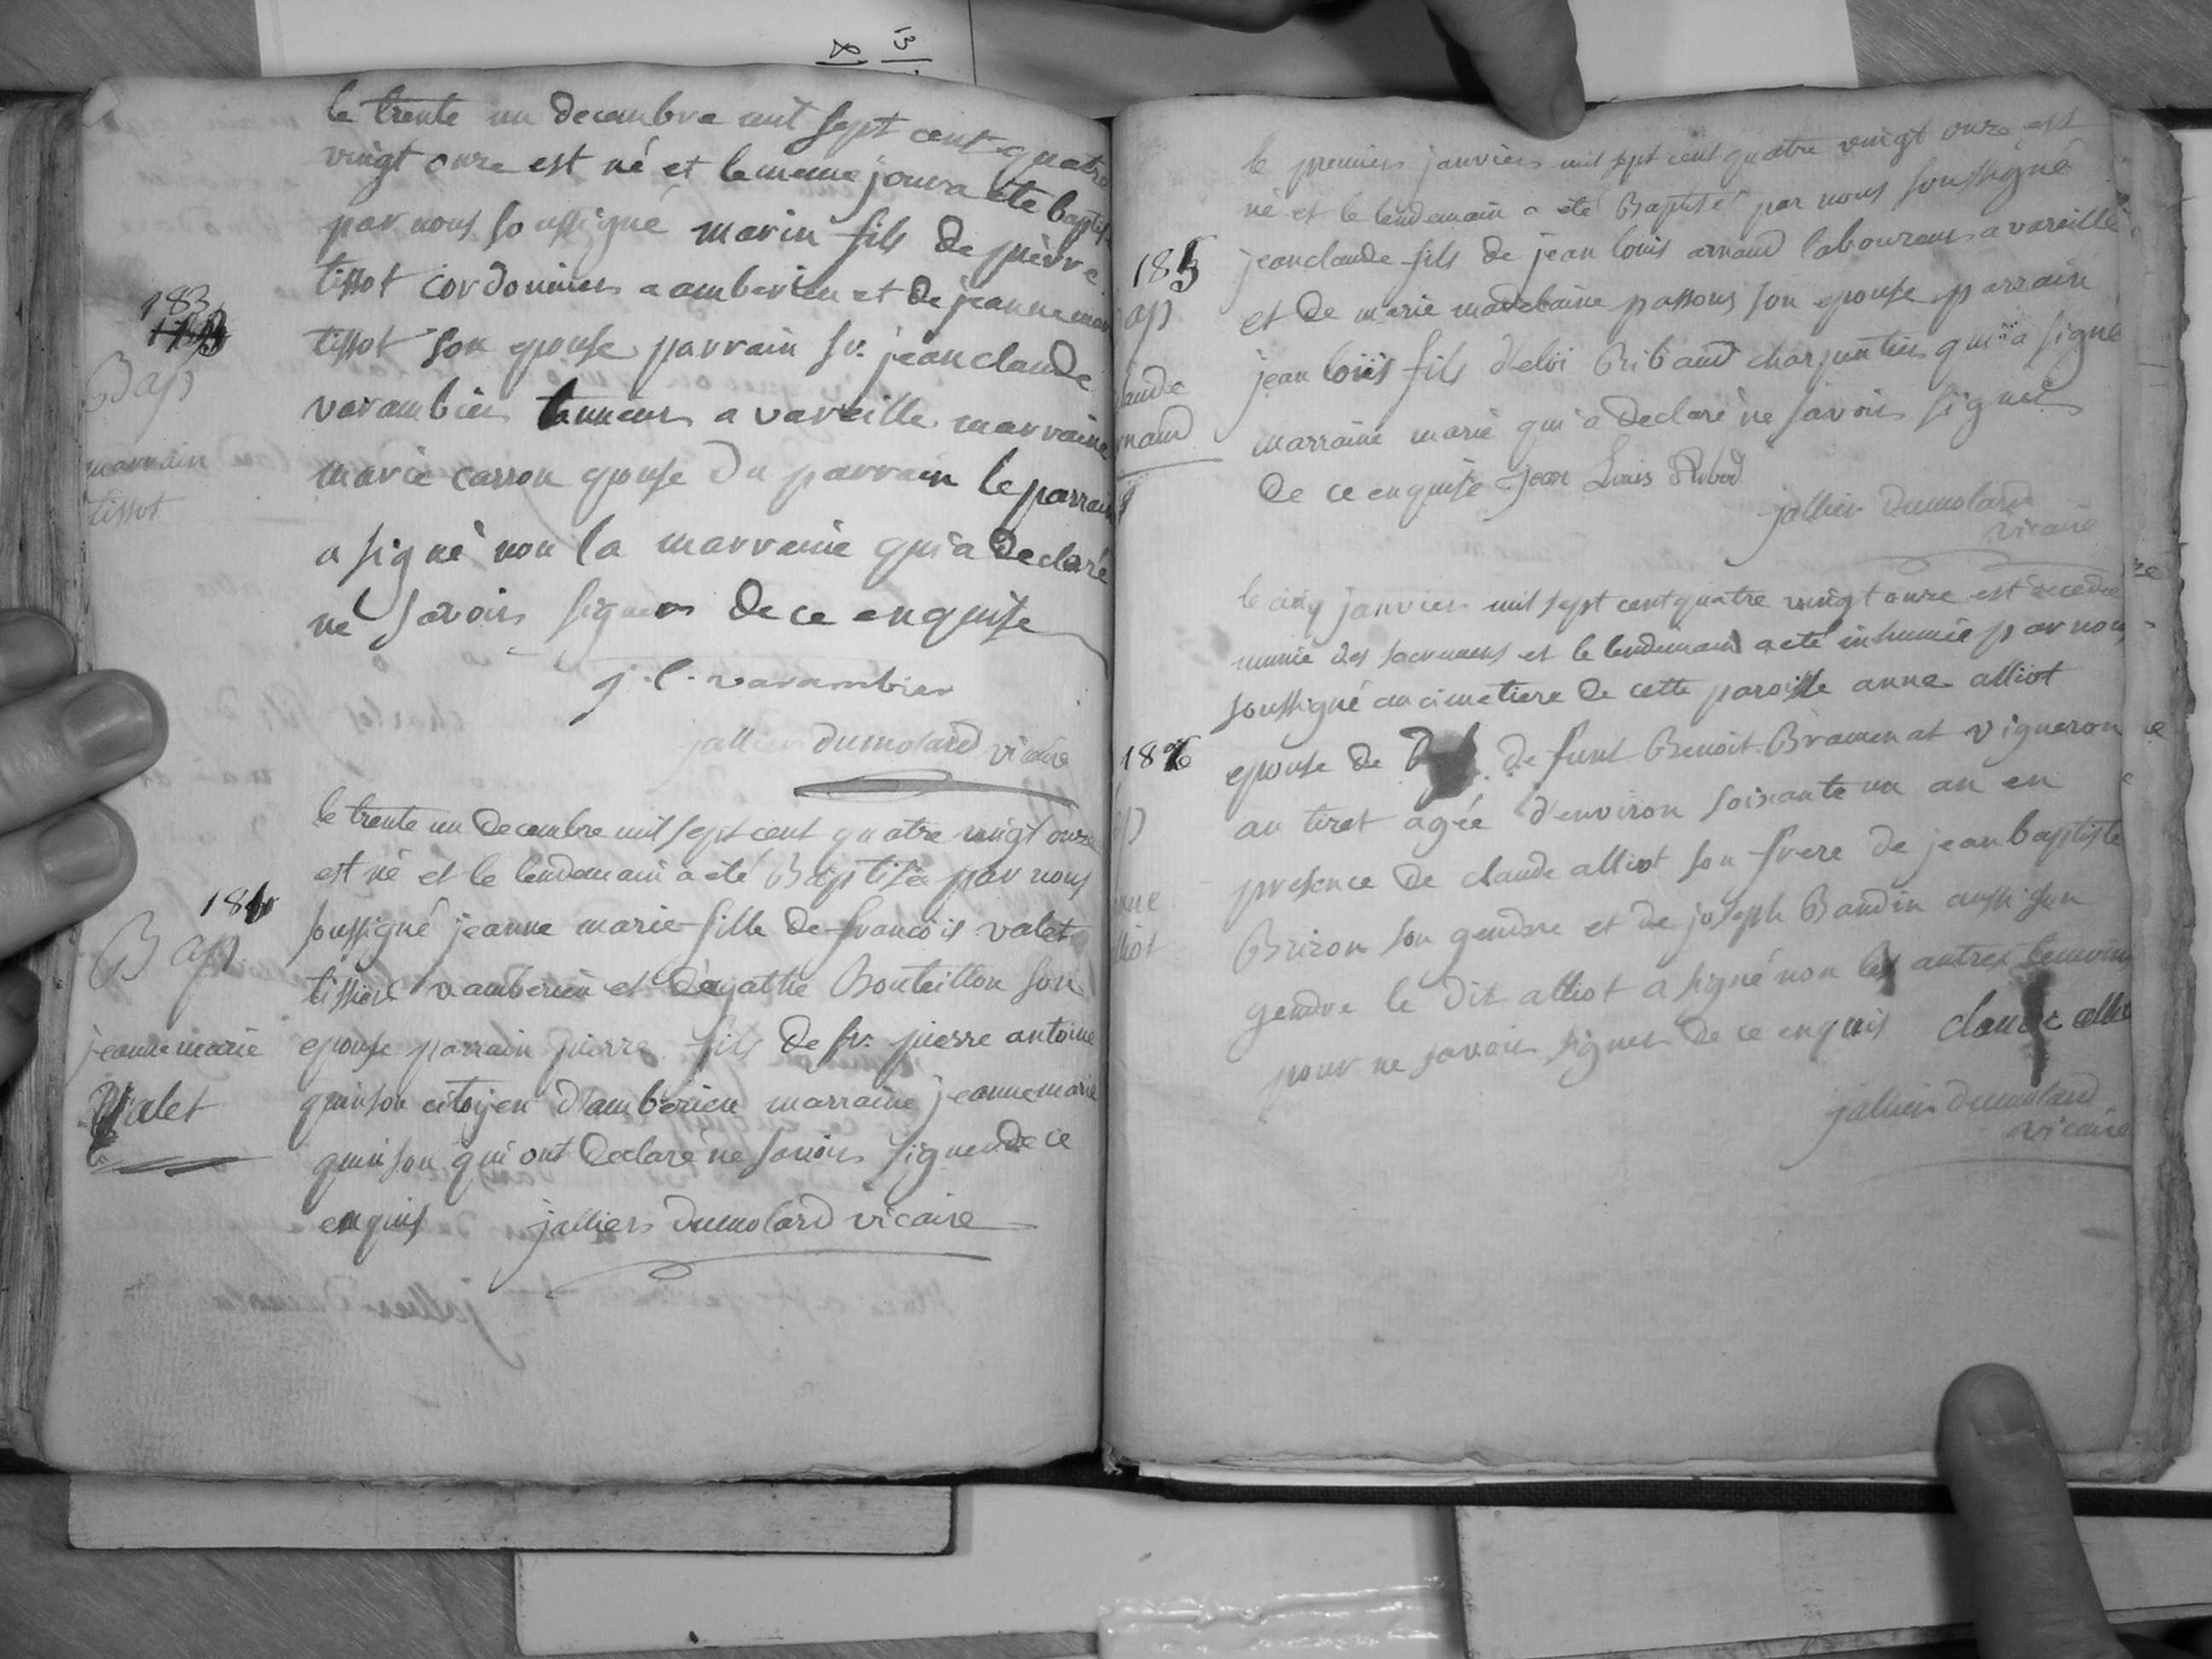 le trente un decembre mil sept cent quatre
vingt onze est né et le meme jour a eté baptisé
par nous soussigné marin fils de pierre
tissot cordonnier a amberieu et de jeanne marie
tissot son epouse parrain sr. jean claude
varambier tanneur a vareille marraine
marie carron epouse du parrain le parrain
a signé non la marraine qui a declaré
ne savoir signer de ce enquise
j. c. varambier
jallier dumolard vicaire
183
Bap
marrain
tissot
le trente un decembre mil sept cent quatre vingt onze
est né et le lendemain a eté Baptisée par nous
soussigné jeanne marie fille de francois valet
tissier d'amberieu et d'agathe Bouteillon son
epouse parrain pierre fils de sr. pierre antoine
quinson citoyen d'amberieu marraine jeanne marie
quinson qui ont declaré ne savoir signer de ce
enquis jallier dumolard vicaire
184
Bap
jeanne marie
Valet
le premier janvier mil sept cent quatre vingt onze est
né et le lendemain a eté Baptisé par nous soussigné
jean claude fils de jean louis arnaud laboureur a vareille
et de marie madelaine passous son epouse parrain
jean loüis fils d'eloi Ribaud charpentier qui a signé
marraine marie qui a declaré ne savoir signer
de ce enquise Jean Louis Ribod
jallier dumolard
vicaire
185
ap
laude
naud
le cinq janvier mil sept cent quatre vingt onze est decedée
munie des sacremens et le lendemain a eté inhumée par nous
soussigné au cimetiere de cette paroisse anne alliot
epouse de defunt Benoit Bramenat vigneron
au tiret agée d'environ soixante un an en
presence de claude alliot son frere de jean baptiste
Brizon son gendre et de joseph Baudin aussi son
gendre le dit alliot a signé non les autres temoins
pour ne savoir signer de ce enquis claude alliot
jallier dumolard
vicaire
186
liot